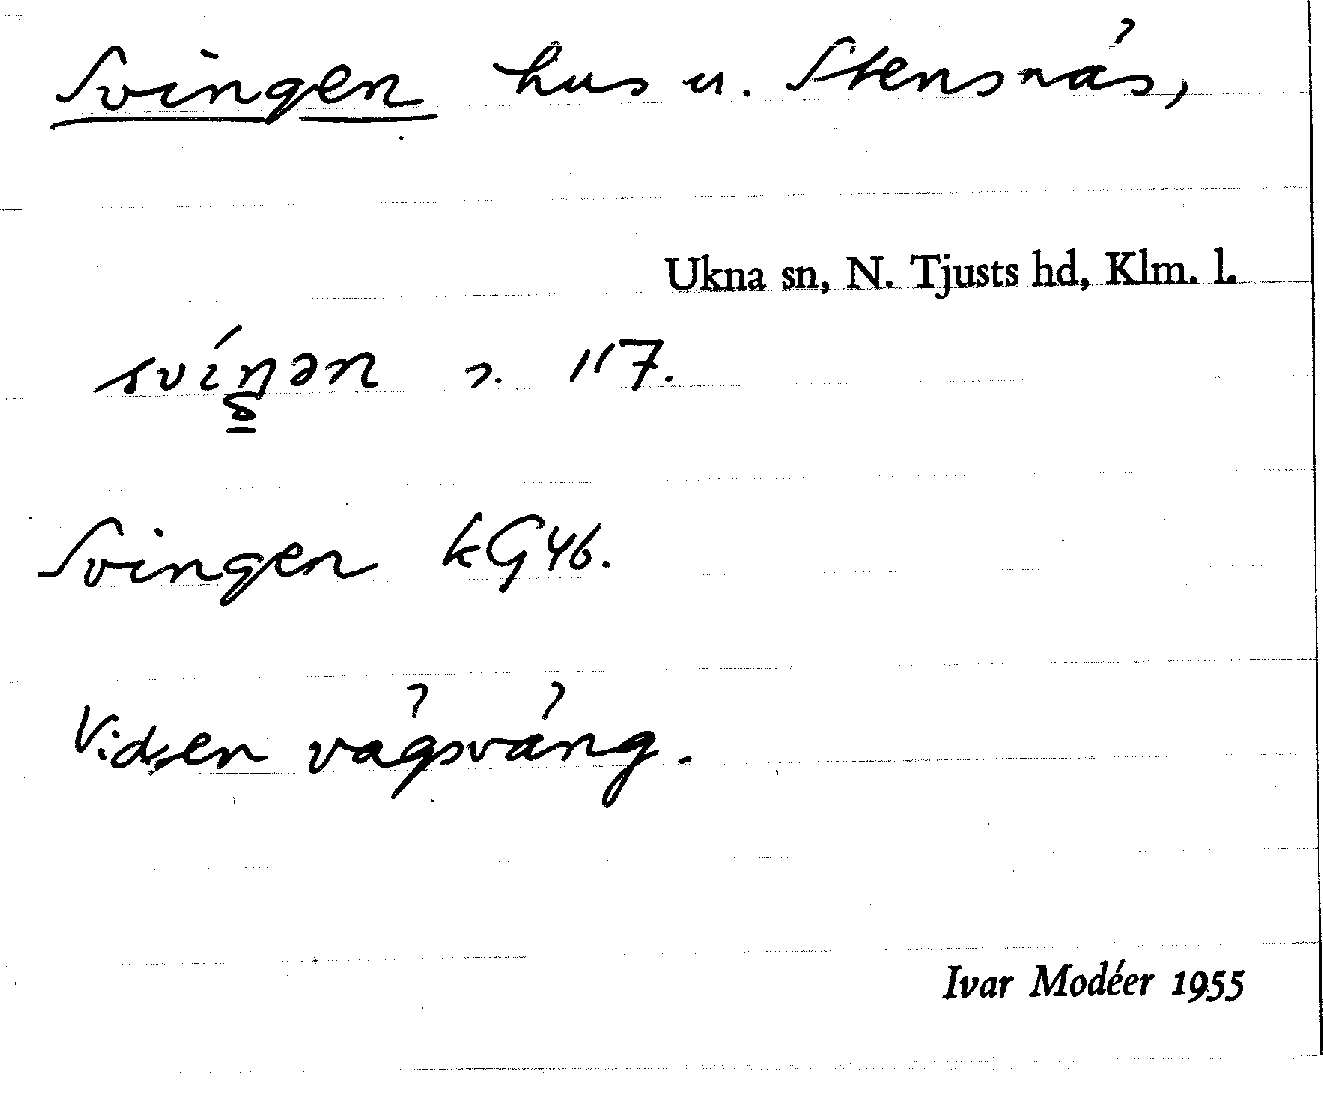 Svingen hus u. Stensnäs,
Ukna sn, N. Tjusts hd, Klm. l.
svíŋən s. 117.
Svingen kG46.
Vid en vägsväng.
Ivar Modéer 1955